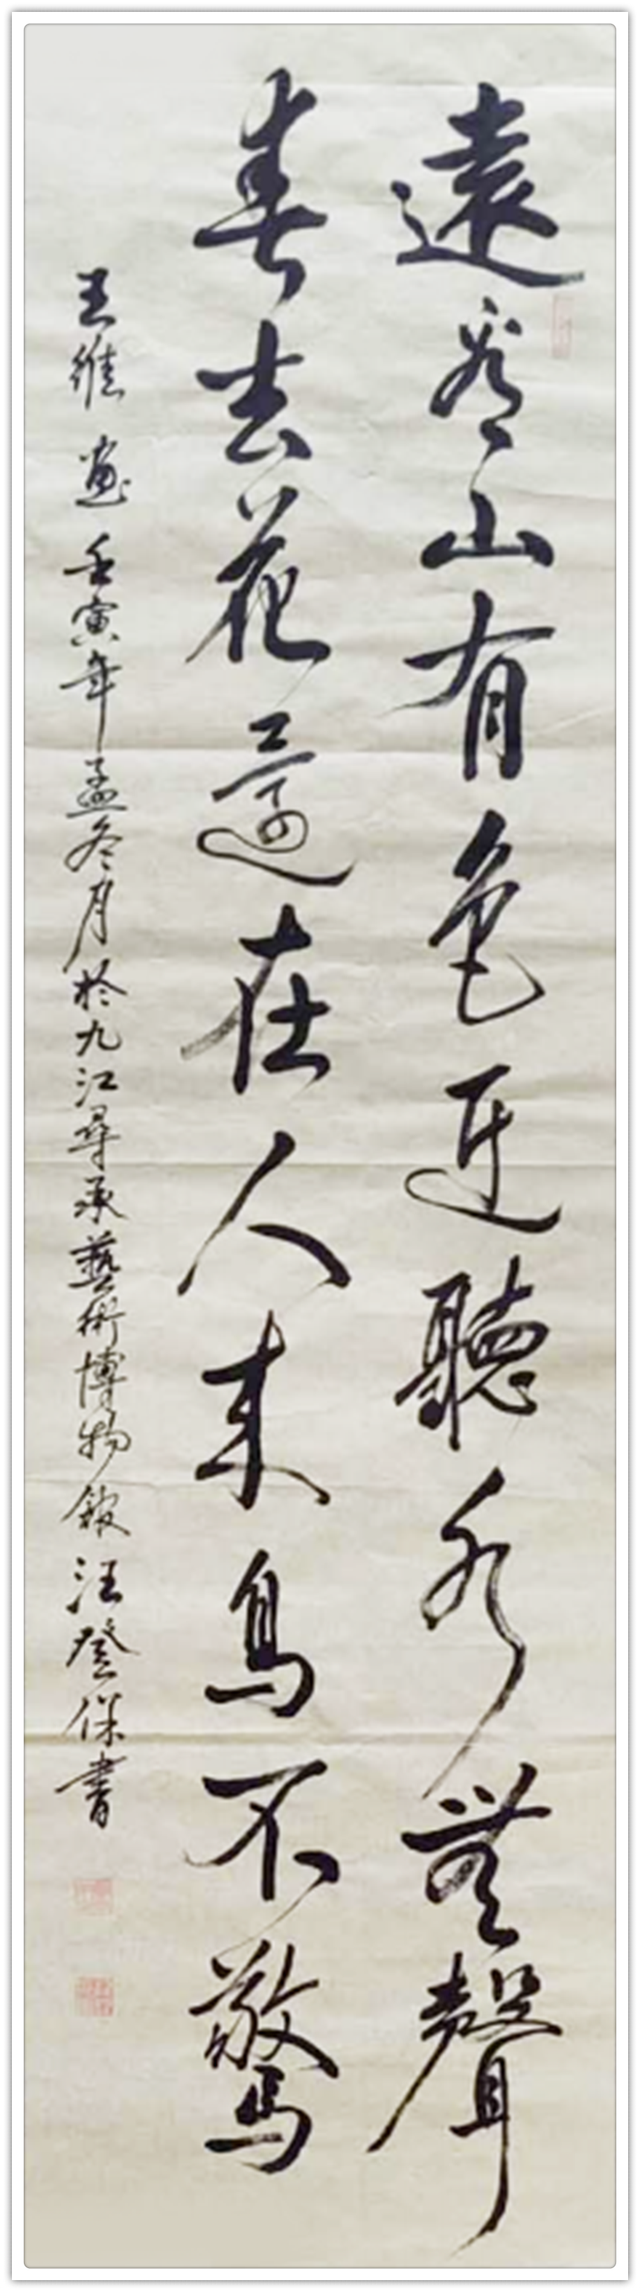 遠看山有色近聽水無聲
春去花還在人來鳥不驚
王維 畫 壬寅年孟冬月於九江尋承藝術博物館 汪登保書